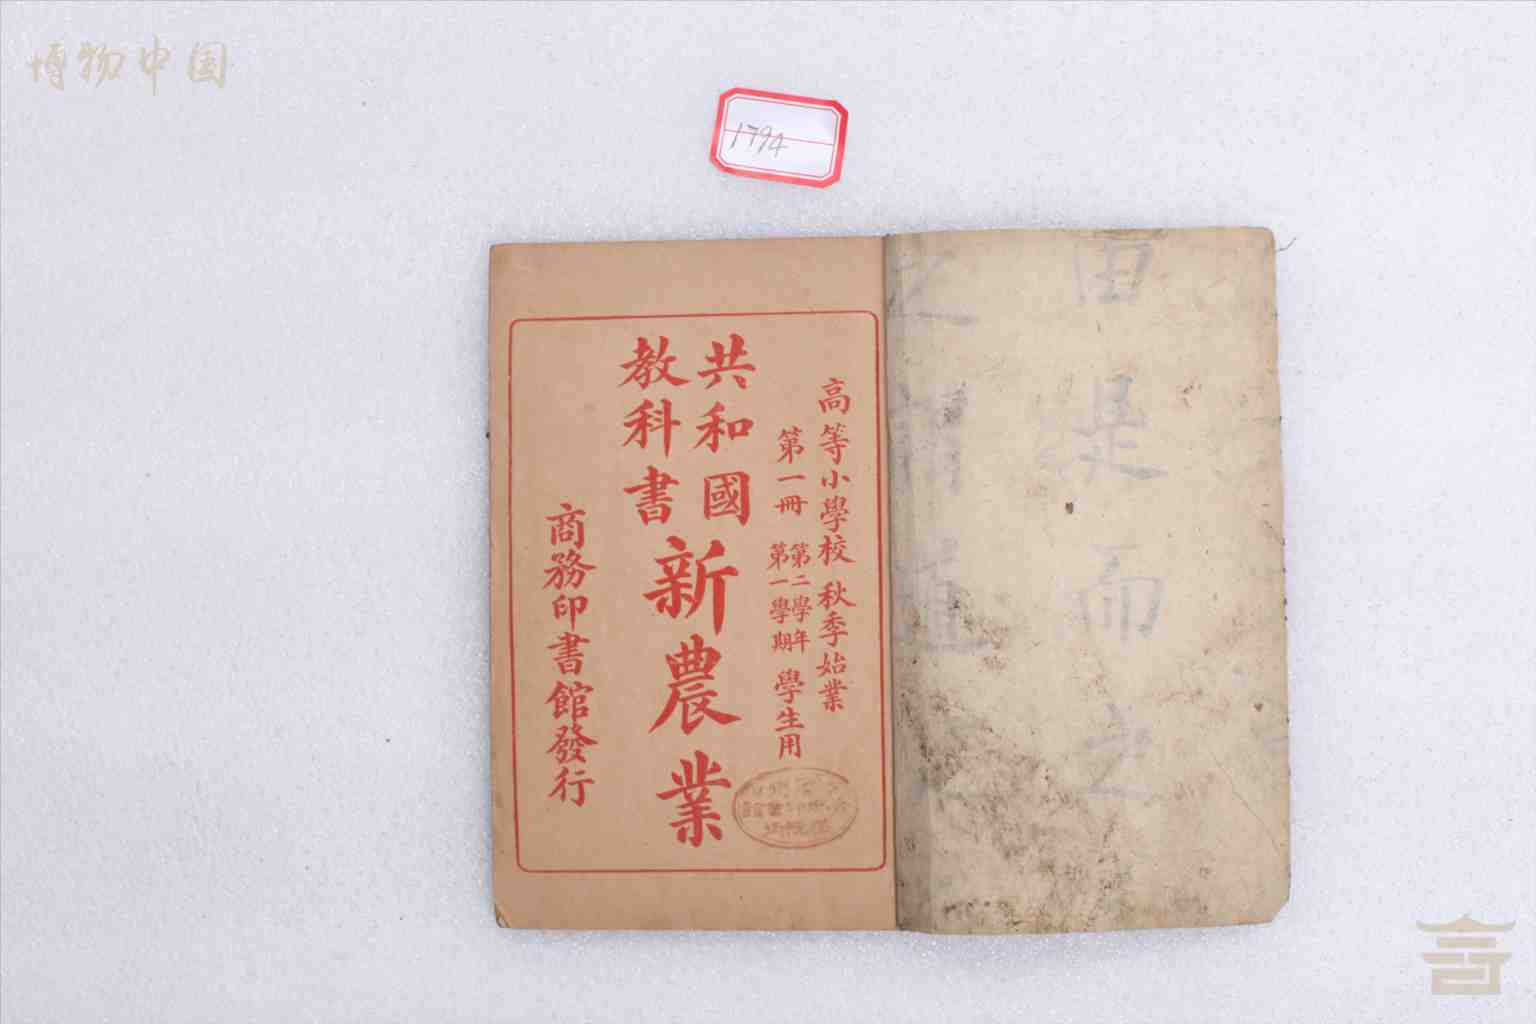 博物中国
1794
由是而之
之謂道
高等小學校 秋季始業
第一冊 第二學年 第一學期 學生用
共和國
教科書
新農業
商務印書館發行